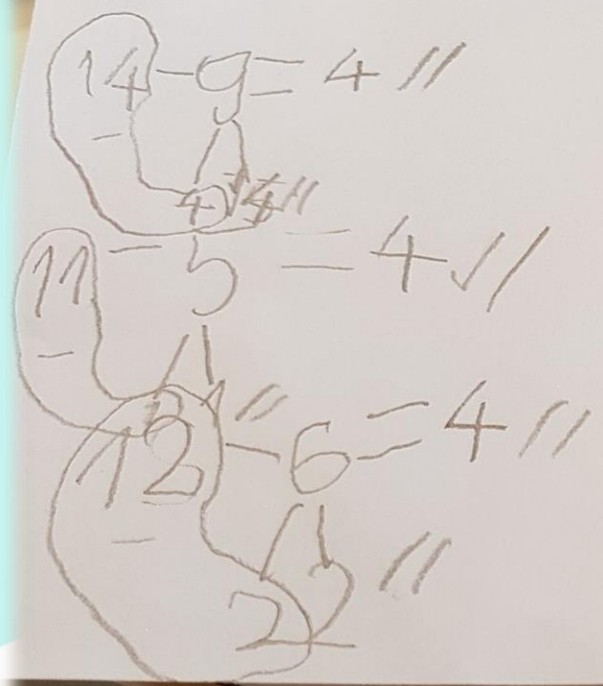 14-9=4 //
-
4 4 //
11-5=4 //
-
12-6=4 //
-
2 //